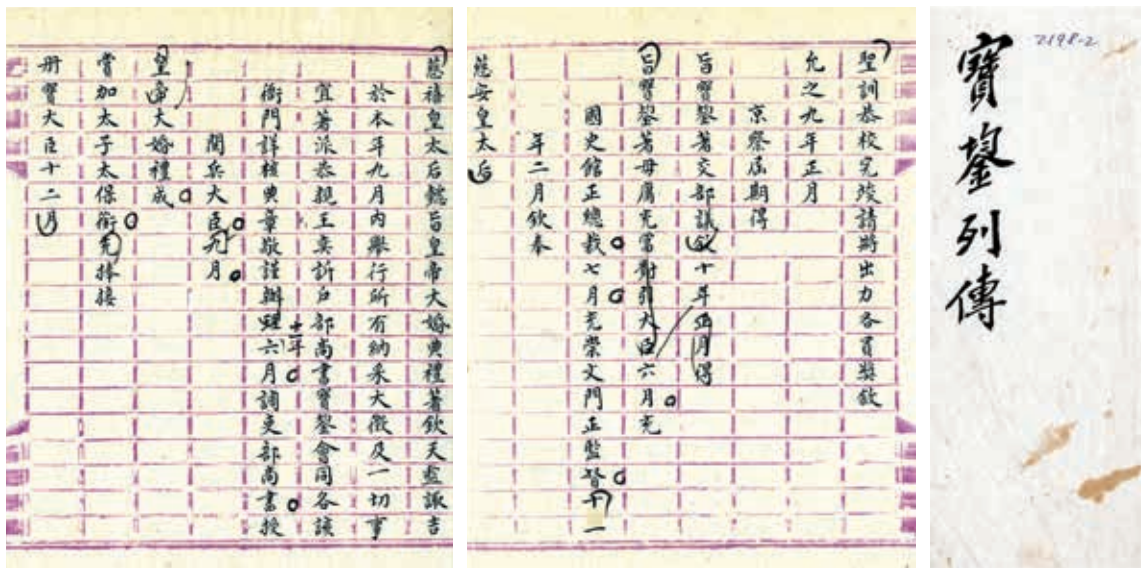 2198-2
寶鋆列傳
聖訓恭校完竣請將出力各員獎敘
允之九年正月
京察屆期得
旨寶鋆著交部議敘十年正月得
旨寶鋆著毋庸充當對引大臣六月充
國史館正總裁七月充崇文門正監督十一
年二月欽奉
慈安皇太后
慈禧皇太后懿旨皇帝大婚典禮著欽天監諏吉
於本年九月內舉行所有納采大徵及一切事
宜著派恭親王奕訢戶部尚書寶鋆會同各該
十一年
衙門詳核典章敬謹辦理六月調吏部尚書授
閱兵大臣九月
皇帝大婚禮成
賞加太子太保銜充捧接
冊寶大臣十二月